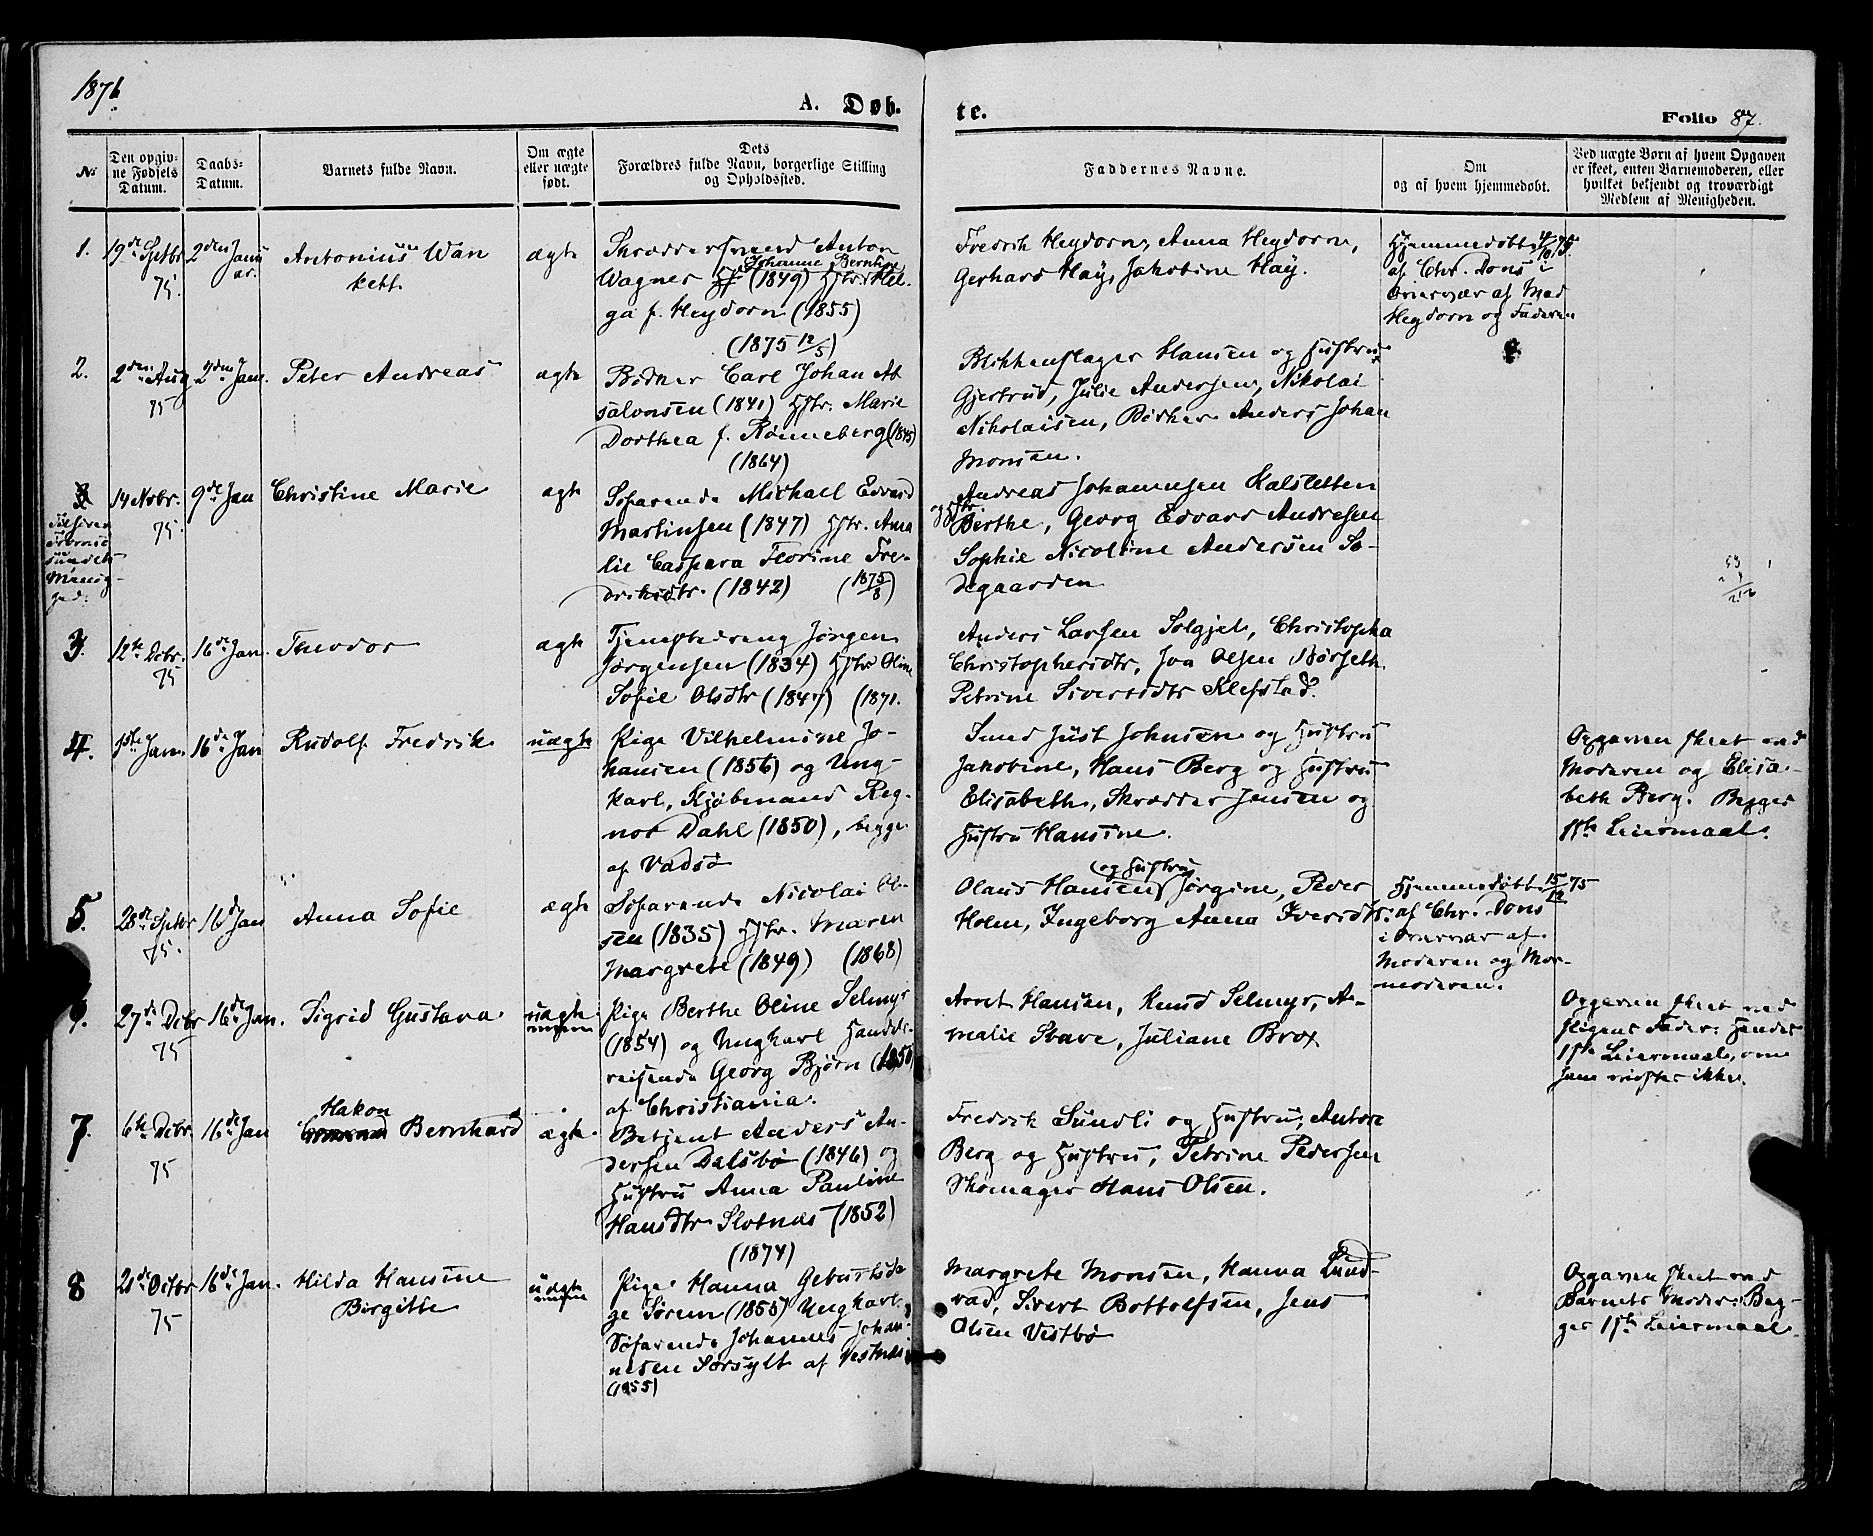 1876.
A. Døb-
te.
Folio 87.
No
Den opgiv-
ne Fødsels
Datum.
Daabs-
Datum.
Barnets fulde Navn.
Om ægte
eller uægte
født.
Dets
Forældres fulde Navn, borgerlige Stilling
og Opholdssted.
Faddernes Navne.
Om
og af hvem hjemmedøbt.
Ved uægte Børn af hvem Opgaven
er skeet, enten Barnemoderen, eller
hvilket bekjendt og troværdigt
Medlem af Menigheden.
1.
19de Septbr
75.
2den Janu
ar.
Antonius Wan
kett
ægte
Skræddersvend Anton
Johanne Bernt
Wagner (1849) Hstr. Hel-
ga f. Heydorn (1855)
(1875 12/5)
Fredrik Heydorn, Anna Heydorn,
Gerhard Høy, Jakobine Høy.
Hjemmedøbt 4/10 75.
af Chr. Dons i
Overvær af Mad
Heydorn og Faderen
2.
2den Aug
75
2den Jan.
Peter Andreas
ægte
Bødker Carl Johan Ab
salonsen (1841) Hstr. Marie
Dorthea f. Rønneberg (1845)
(1864)
Blikkenslager Hansen og Hustru
Gjertrud, Julie Andersen, Nikolai
Nikolaisen, Bødker Anders Johan
Monsen.
14 Novbr.
75.
9de Jan
Christine Marie
ægte
Søfarende Michael Edvard
Martinsen (1847) Hstr. Ama
lie Caspara Florine Fre-
driksdtr. (1842) (1875/8)
Andreas Johannesen Kalstetten
og Hstr.
Berthe, Georg Edvard Andresen
Sophie Nicoline Andersen So-
degaarden
3.
12te Debr.
75
16de Jan.
Theodor
ægte
Tjenestedreng Jørgen
Jørgensen (1834) Hstr Oline
Sofie Olsdtr (1847) (1871.
Anders Larsen Solgjel, Christopha
Christophersdtr, Joa Olsen Børseth
Petrine Sivertsdtr Klefstad.
4.
1ste Jan.
16de Jan
Rudolf Fredrik
uægte
Pige Vilhelmine Jo-
hansen (1856) og Ung-
karl, Kjøbmand Reg-
nor Dahl (1850), begge
af Vadsø
Smed Just Johnsen og Hustru
Jakobine, Hans Berg og Hustru
Elisabeth, Skrædder Jensen og
Hustru Hansine.
Opgaven skeet ved
Moderen og Elisa-
beth Berg. Begges
1ste Leiermaal.
5.
28de Sptbr
75.
16de Jan
Anna Sofie
ægte
Søfarende Nicolai Ol-
sen (1835) Hstr. Maren
Margrete (1849) (1868)
og Hustru
Olaus Hansen Jørgine, Peder
Holm, Ingeborg Anna Iversdtr.
Hjemmedøbt 15/12 75
af Chr. Dons
i Overvær af
Moderen og Mor-
moderen.
27de Debr
75
16de Jan.
Sigrid Gustava
uægte
Pige Berthe Oline Selmys
(1854) og Ungkarl Handels-
reisende Georg Bjørn (1850)
af Christiania.
Arnt Hansen, Knud Selmys, A-
malie Stave, Juliane Brox
Opgaven skeet ved
Pigens Fader: Hendes
1ste Leiermaal, om
hans vidstes ikke.
7.
6te Debr.
75
16de Jan
Hakon
Bernhard
ægte
Betjent Anders An-
dersen Dalsbø (1846) og
Hustru Anna Pauline
Hansdtr Slotnæs (1852)
(1874)
Fredrik Sundli og Hustru, Anton
Berg og Hustru, Petrine Pedersen
Skomager Hans Olsen.
8
20de Octbr
75
16de Jan.
Hilda Hansine
Birgitte
uægte
Pige Hanna Geburtsda
ge Sørem (1855) Ungkarl
Søfarende Johannes Johan-
nesen Sørsylt af Vestnæs
(1855)
Margrete Monsen, Hanna Lund-
vad, Sivert Bottolfsen, Jens
Olsen Vestbø
Opgaven skeet ved
Barnets Moder: Beg-
ges 1ste Leiermaal.